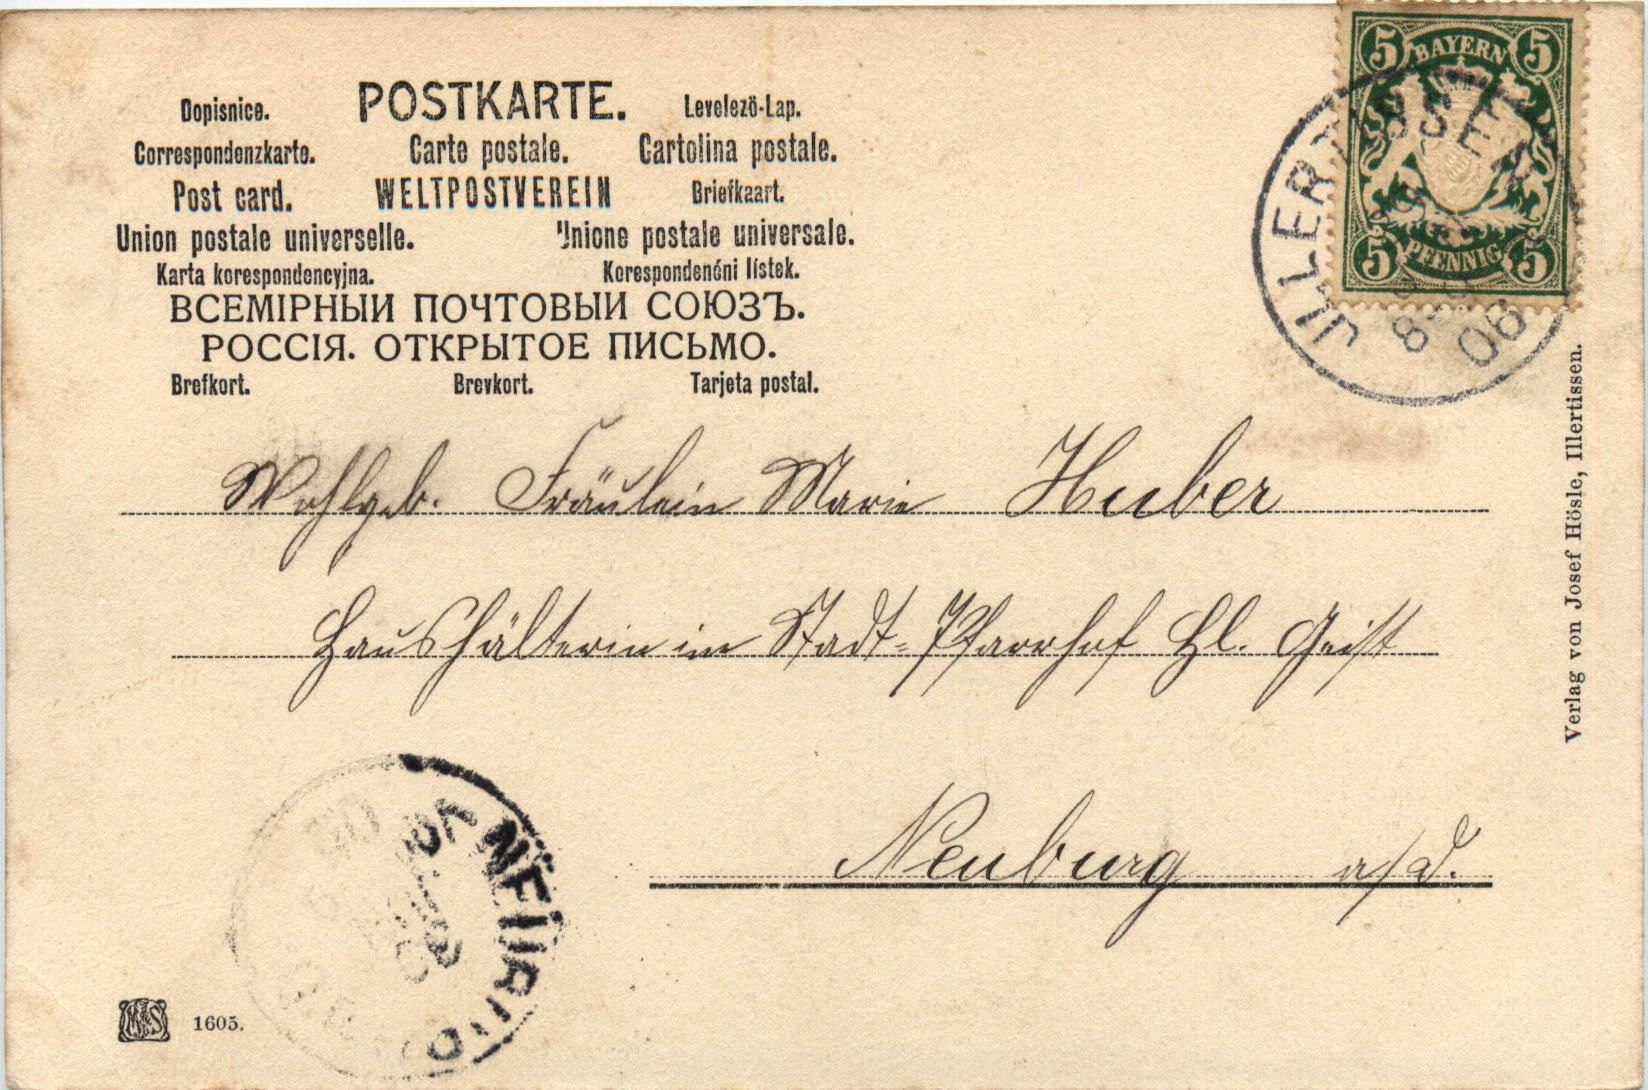 Dopisnice. POSTKARTE. Levelezö-Lap.
Correspondenzkarte. Carte postale. Cartolina postale.
Post card. WELTPOSTVEREIN Briefkaart.
Union postale universelle. Unione postale universale.
Karta korespondencyjna. Korespondenóni lístek.
ВСЕМІРНЫИ ПОЧТОВЫИ СОЮЗЪ.
РОССІЯ. ОТКРЫТОЕ ПИСЬМО.
Brefkort. Brevkort. Tarjeta postal.
5 BAYERN 5
5 PFENNIG 5
JLLERTISSEN
06
Verlag von Josef Hösle, Illertissen.
Wohlgeb. Fräulein Marie Huber
Haushälterin im Stadt=Pfarrhof Hl. Geist
Neuburg a/d.
NEUBURG
M&S 1605.